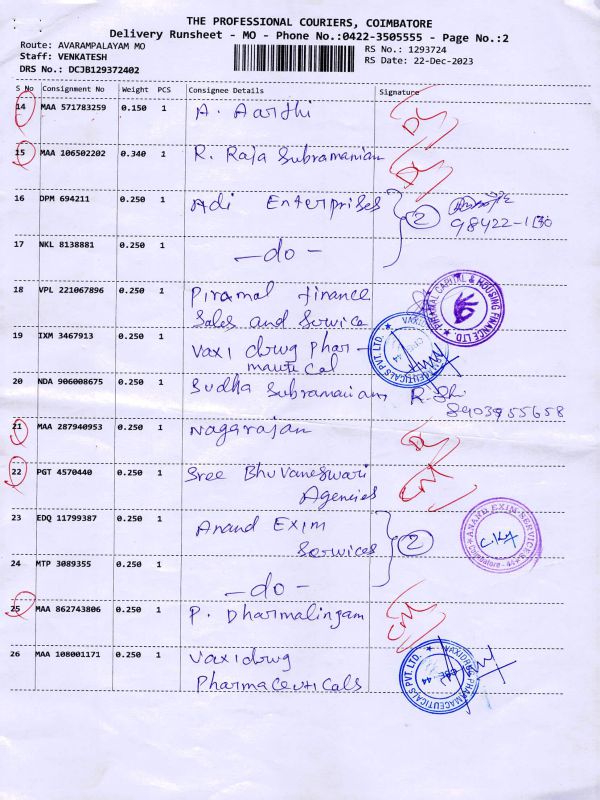 THE PROFESSIONAL COURIERS, COIMBATORE
Delivery Runsheet - MO - Phone No.:0422-3505555 - Page No.:2
Route: AVARAMPALAYAM MO
RS No.: 1293724
Staff: VENKATESH
RS Date: 22-Dec-2023
DRS No.: DCJB129372402
S No Consignment No Weight PCS Consignee Details Signature
14 MAA 571783259 0.150 1 A. Aarthi DL
15 MAA 106502202 0.340 1 R. Raja Subramanian DL
16 DPM 694211 0.250 1 Adi Enterprises 2
98422-
17 NKL 8138881 0.250 1 - do -
18 VPL 221067896 0.250 1 Piramal finance
Sales and Service
PIRAMAL CAPITAL & HOUSING FINANCE LTD.
19 IXM 3467913 0.250 1 Vaxi drug Phar-
mautical
VAXIDRUG PHARMACEUTICALS PVT. LTD.
CBE-44
20 NDA 906008675 0.250 1 Sudha Subramaniam R.
8903955658
21 MAA 287940953 0.250 1 Nagarajan DL
22 PGT 4570440 0.250 1 Sree Bhuvaneswari
Agencies CM
23 EDQ 11799387 0.250 1 Anand Exim
Services 2
ANAND EXIM SERVICES
Coimbatore - 44
24 MTP 3089355 0.250 1 - do -
25 MAA 862743806 0.250 1 P. Dharmalingam CM
26 MAA 108001171 0.250 1 Vaxidrug
Pharmaceuticals
VAXIDRUG PHARMACEUTICALS PVT. LTD.
CBE-44